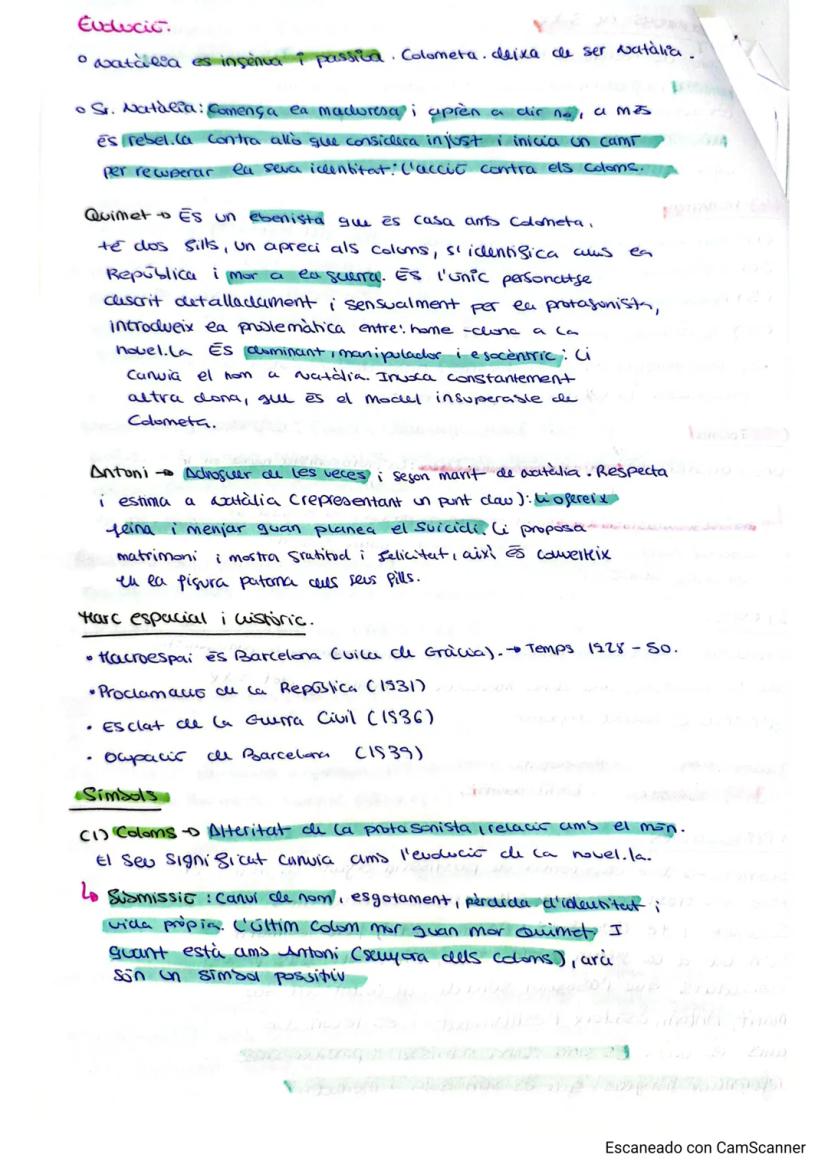 Evolució:
° Natàlia es ingènua i passiva. Colometa. deixa de ser Natàlia.
° Sr. Natàlia: Comença la maduresa i aprèn a dir no, a més
és rebel.la contra allò que considera injust i inicia un camí
per recuperar la seva identitat: l'acció contra els coloms.
Quimet → És un ebenista que es casa amb Colometa,
té dos fills, un apreci als coloms, s'identifica amb la
República i mor a la guerra. És l'únic personatge
descrit detalladament i sensualment per la protagonista,
introdueix la problemàtica entre: home - dona a la
novel.la És dominant, manipulador i egocèntric: li
canvia el nom a Natàlia. Invoca constantment
altra dona, que és el model insuperable de
Colometa.
Antoni → Adroguer de les veces i segon marit de Natàlia. Respecta
i estima a Natàlia (representant un punt clau): li ofereix
feina i menjar quan planea el suicidi. Li proposa
matrimoni i mostra gratitud i felicitat, així és converteix
en la figura paterna dels seus fills.
Marc espacial i històric.
• Macroespai és Barcelona (vila de Gràcia). → Temps 1928 - 50.
• Proclamació de la República (1931)
• Esclat de la Guerra Civil (1936)
• Ocupació de Barcelona (1939)
Símbols
(1) Coloms → Alteritat de la protagonista, relació amb el món.
El seu significat canvia amb l'evolució de la novel.la.
↳ Submissió: Canvi de nom, esgotament, pèrdida d'identitat i
vida pròpia. L'últim colom mor quan mor Quimet, I
quant està amb Antoni (senyora dels coloms), ara
són un símbol possitiv
Escaneado con CamScanner